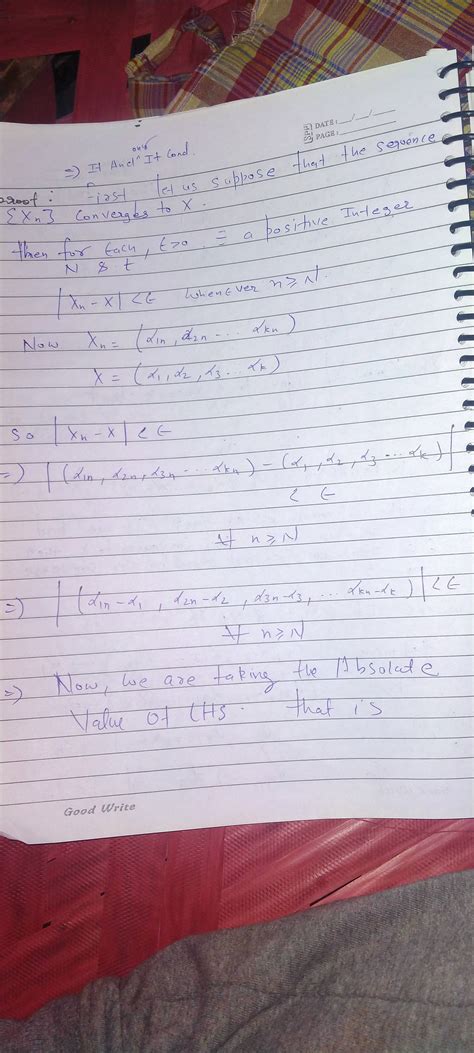 DATE: __/__/__
PAGE:
only
=> If And ^ If Cond.
proof: First let us suppose that the sequence
{Xn} Converges to X.
then for Each, ϵ>0 ∃ a positive Integer
N s t
|Xn - X| < ϵ whenever n ≥ N.
Now Xn = (α1n, α2n .... αkn)
X = (α1, α2, α3 ... αk)
So |Xn - X| < ϵ
=> |(α1n, α2n, α3n .... αkn) - (α1, α2, α3 ... αk)|
< ϵ
∀ n ≥ N
=> |(α1n - α1, α2n - α2, α3n - α3, ... αkn - αk)| < ϵ
∀ n ≥ N
=> Now, we are taking the Absolute
Value of LHS. that is
Good Write